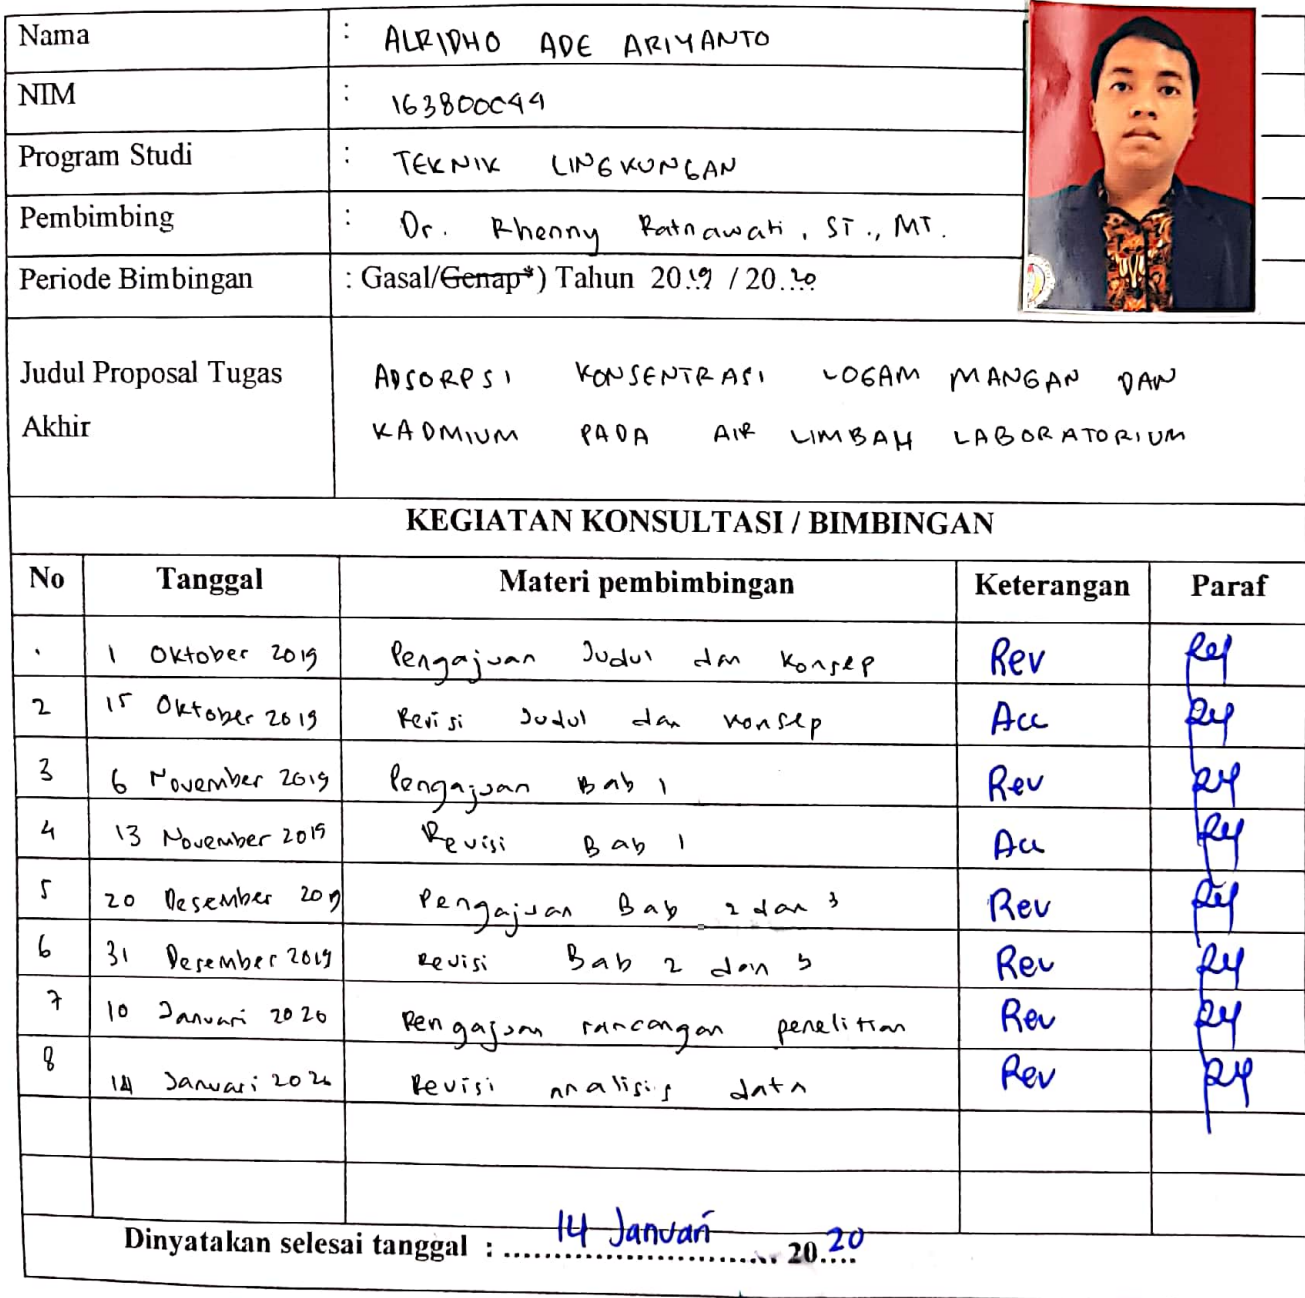 Nama : ALRIDHO ADE ARIYANTO
NIM : 163800044
Program Studi : TEKNIK LINGKUNGAN
Pembimbing : Dr. Rhenny Ratnawati, ST., MT.
Periode Bimbingan : Gasal/Genap*) Tahun 2019 / 20..20
Judul Proposal Tugas ADSORPSI KONSENTRASI LOGAM MANGAN DAN
Akhir KADMIUM PADA AIR LIMBAH LABORATORIUM
KEGIATAN KONSULTASI / BIMBINGAN
No Tanggal Materi pembimbingan Keterangan Paraf
. 1 Oktober 2019 Pengajuan Judul dan Konsep Rev
2 15 Oktober 2019 Revisi Judul dan Konsep Acc
3 6 November 2019 Pengajuan Bab 1 Rev
4 13 November 2019 Revisi Bab 1 Acc
5 20 Desember 2019 Pengajuan Bab 2 dan 3 Rev
6 31 Desember 2019 Revisi Bab 2 dan 3 Rev
7 10 Januari 2020 Pengajuan rancangan penelitian Rev
8 14 Januari 2020 Revisi analisis data Rev
Dinyatakan selesai tanggal : 14 Januari 2020